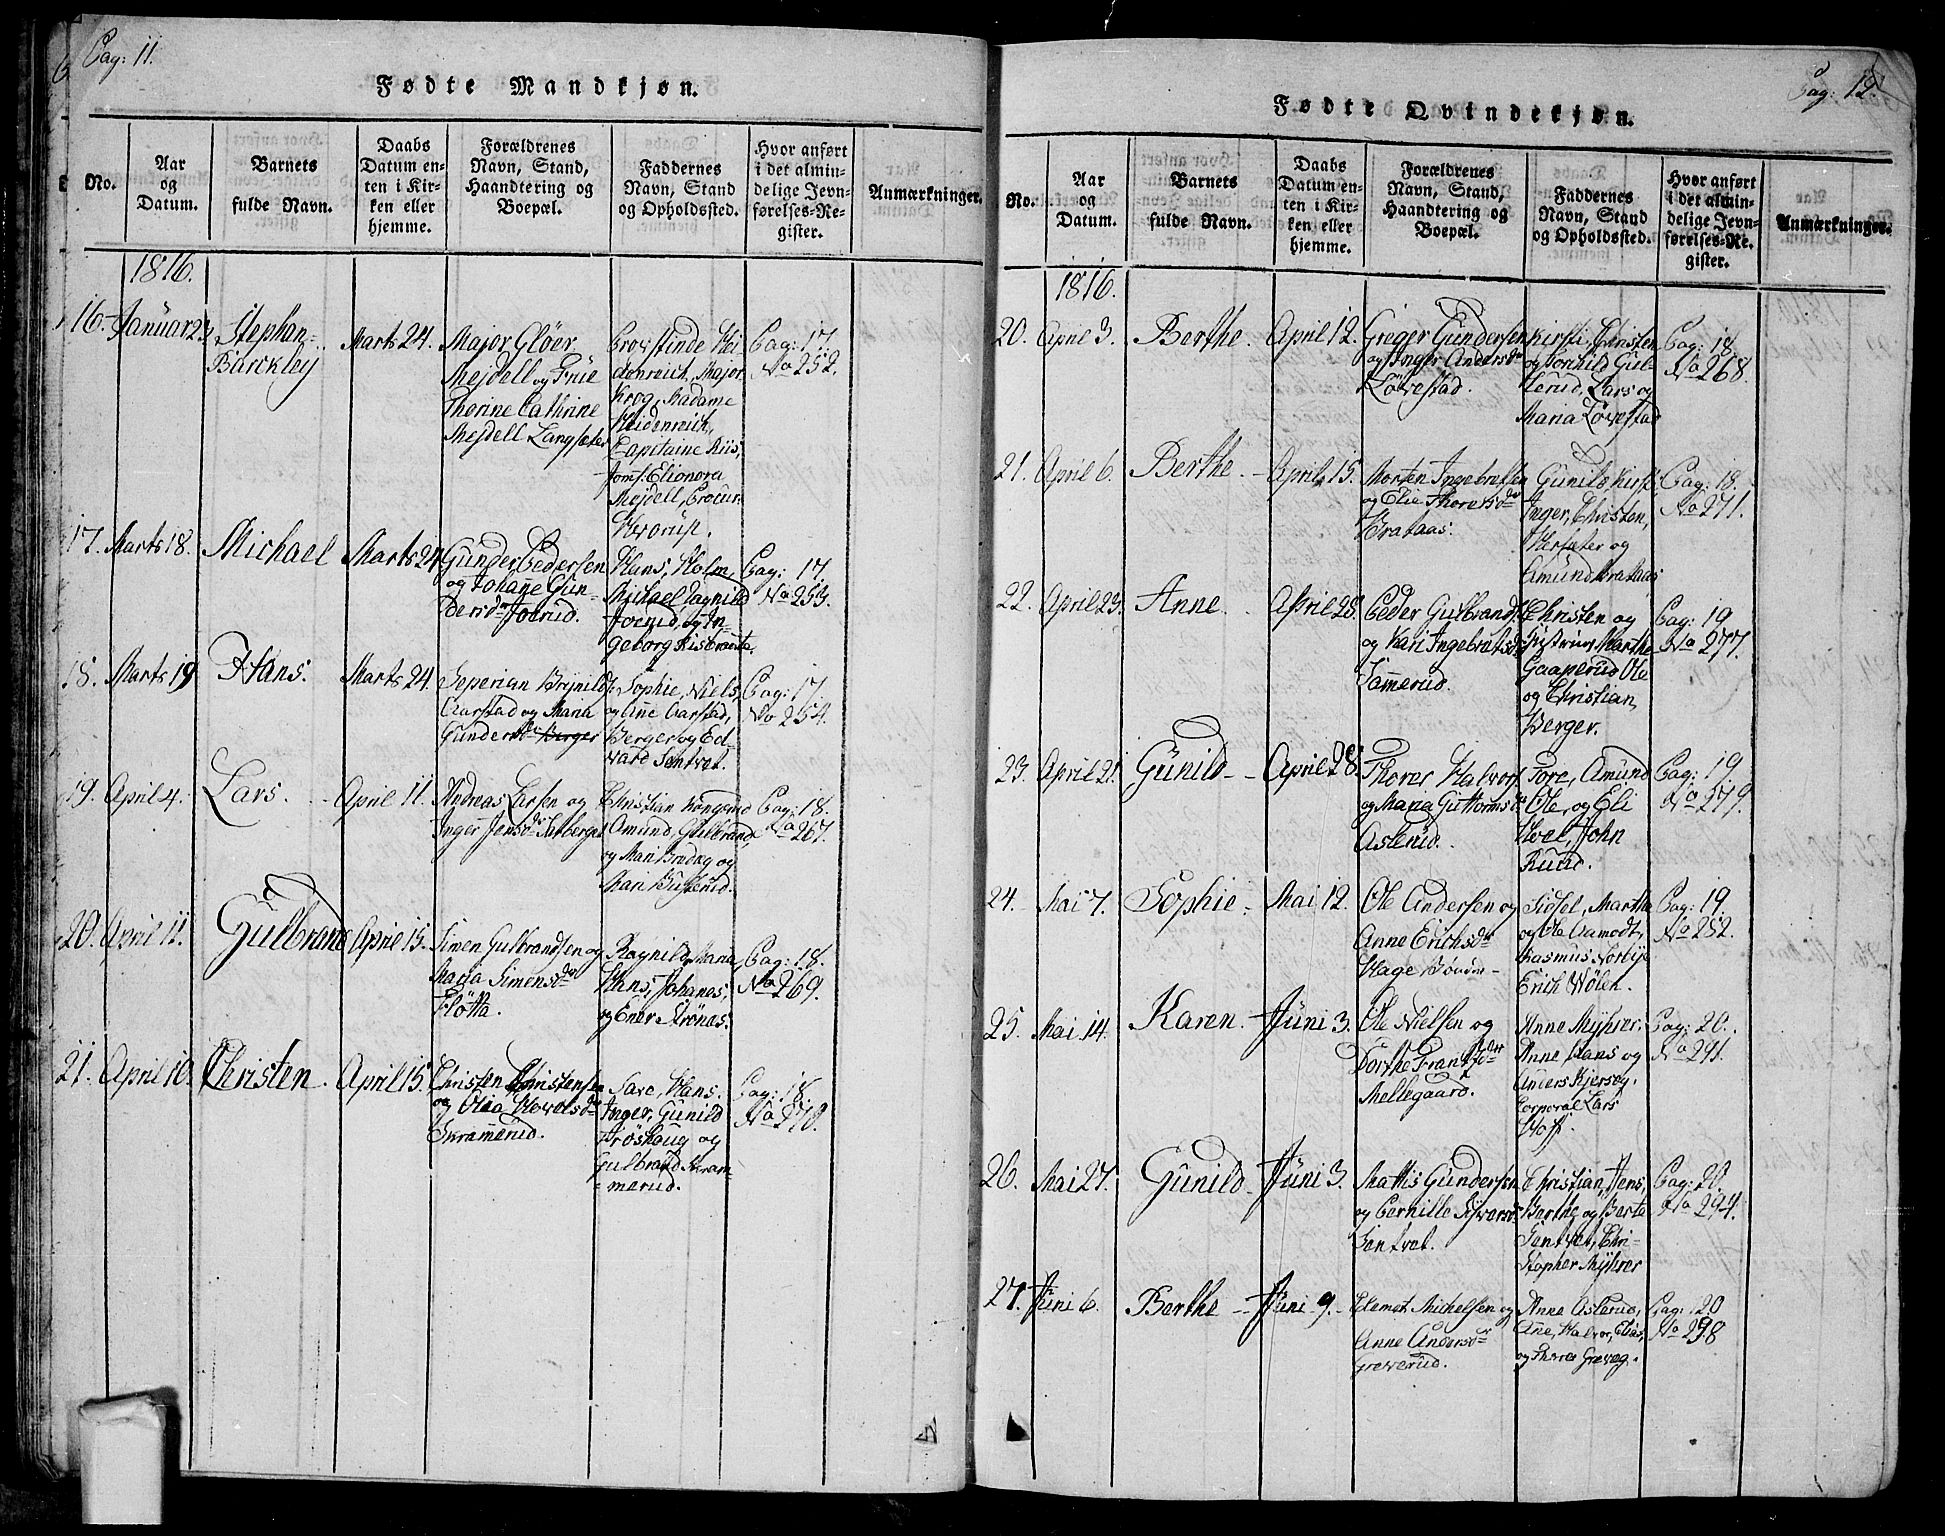 Pag: 11.
Fødte Mandkjøn.
No.
Aar
og
Datum.
Barnets
fulde Navn.
Daabs
Datum en-
ten i Kir-
ken eller
hjemme.
Forældrenes
Navn, Stand,
Haandtering og
Boepæl.
Faddernes
Navn, Stand
og Opholdssted.
Hvor anført
i det almin-
delige Jevn-
førelses-Re-
gister.
Anmærkninger.
1816.
16. Januar 23.
Stephan
Barckley
Marts 24.
Major Gløer
Mejdell og Frue
Thorine Cathrine
Mejdell Langsæter
Provstinde Hei
denreich, Major
Krog, Madame
Heidenreich,
Capitaine Riis,
Jomf. Elionora
Mejdell, Procur.
Pag: 17.
No 252.
17. Marts 18.
Michael
Marts 24
Gunder Pedersen
og Johanne Gun-
dersdr Joerud.
Hans, Holm,
Michael Ragnild
Joerud, og In-
geborg
Pag: 17
No 253.
18. Marts 19
Hans.
Marts 24.
Seperian Brynilds
Aarstad og Maria
Gundersdr Berger
Sophie, Niels,
og Ane Aarstad,
Berger og Ed-
vard Sentvet.
Pag: 17.
No 254.
19. April 4.
Lars.
April 11.
Andreas Larsen og
Inger Jensdr
Christian
Amund, Gulbrand,
og Mari Bredag og
Mari Busterud.
Pag: 18.
No 267.
20. April 11.
Gulbrand
April 15.
Simen Gulbrandsen og
Maria Simensdr
Fløtta.
Ragnild, Maria,
Hans, Johanes,
og Ener Strønæs.
Pag: 18.
No 269.
21. April 10.
Christen.
April 15.
Christen Christensen
og Olia
Skramerud.
Sare, Hans,
Inger, Gunild
Frøshaug og
Gulbrand Skram-
merud.
Pag: 18.
No 270.
Pag: 12.
Fødte Qvindekjøn.
No.
Aar
og
Datum.
Barnets
fulde Navn.
Daabs
Datum en-
ten i Kir-
ken eller
hjemme.
Forældrenes
Navn, Stand,
Haandtering og
Boepæl.
Faddernes
Navn, Stand
og Opholdssted.
Hvor anført
i det almin-
delige Jevn-
førelses-Re-
gister.
Anmærkninger.
1816.
20. April 3.
Berthe.
April 12.
Greger Gundersen
og Inger Andersdr
Løvestad.
Kirsti, Christen
og Gul-
lerud, Lars og
Maria Løvestad
Pag: 18
No 268.
21. April 6.
Berthe
April 15.
Morten Ingebretsen
og Elie Thorersdr
Brataas.
Gunild,
Inger, Christen,
og
Amund Brataas
Pag: 18.
No 271.
22. April 23.
Anne
April 28.
Peder Gulbrands.
og Kari Ingebretsdr
Tomerud.
Christen og
Marthe
Gaaperud Ole
og Christian,
Berger.
Pag: 19
No 277.
23. April 21.
Gunild
April 28.
Thorer Halvors.
og Maria Guttormsdr
Aslerud.
Tore, Amund
Ole, og Eli
Hoel, John
Ruud.
Pag: 19
No 279.
24. Mai 7.
Sophie
Mai 12.
Ole Andersen og
Anne Erichsdr
Hage
Sidsel, Marthe
og Ole Aamodt,
Rasmus Norbye
Erich Wølen.
Pag: 19.
No 252.
25. Mai 14.
Karen.
Juni 3.
Ole Nielsen og
Dorthe Frantzdtr
Mellegaard.
Anne Myhrer,
Anne Hans og
Anders Kjersøy,
Corporal Lars
Hoff.
Pag: 20.
No 291.
26. Mai 27.
Gunild
Juni 3.
Mathis Gundersen
og Pernille Syversdr
Sentvet.
Christian, Jens,
Berthe og Berte
Sentvet, Chri-
stopher Myhrer
Pag: 20.
No 294.
27. Juni 6.
Berthe
Juni 9.
Edemot Michelsen og
Anne Andersdr
Greverud.
Anne Aslerud,
Ane, Halvor, Elias,
og Thorer Greveg.
Pag: 20
No 298